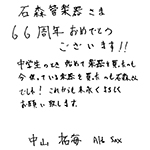 石森管楽器さま
66周年おめでとう
ございます!!
中学生のとき 始めて楽器を買ったのも
今使っている楽器を買ったのも石森さん
でした! これからも末永くよろしく
お願い致します。
中山拓海 Alto Sax